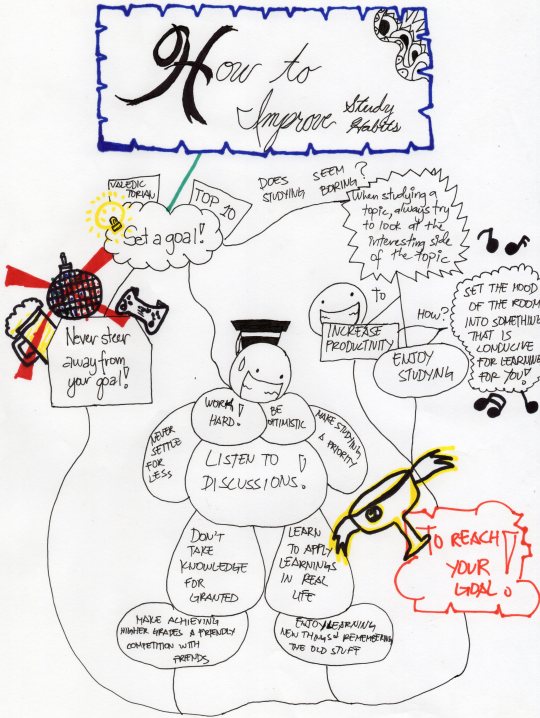 How to
Improve Study
Habits
VALEDIC
TORIAN
TOP 10
Set a goal!
DOES STUDYING SEEM BORING?
When studying a
topic, always try
to look at the
interesting side
of the topic
Never steer
away from
your goal!
to
INCREASE
PRODUCTIVITY
HOW?
ENJOY
STUDYING
SET THE MOOD
OF THE ROOM
INTO SOMETHING
THAT IS
CONDUCIVE
FOR LEARNING
FOR YOU!
WORK
HARD!
BE
OPTIMISTIC
NEVER
SETTLE
FOR
LESS
MAKE STUDYING
A PRIORITY
LISTEN TO
DISCUSSIONS!
DON'T
TAKE
KNOWLEDGE
FOR
GRANTED
LEARN
TO APPLY
LEARNINGS
IN REAL
LIFE
TO REACH
YOUR
GOAL!
MAKE ACHIEVING
HIGHER GRADES A FRIENDLY
COMPETITION WITH
FRIENDS
ENJOY LEARNING
NEW THINGS & REMEMBERING
THE OLD STUFF